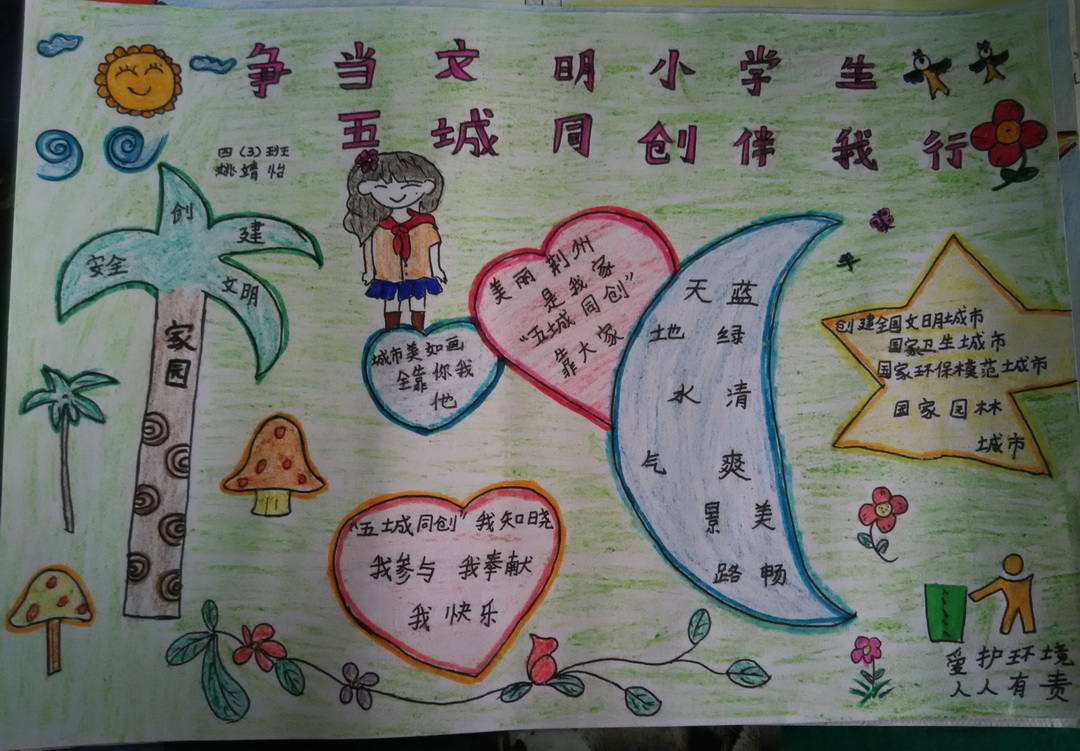 争当文明小学生
五城同创伴我行
四(3)班
姚婧怡
创
建
安全
文明
家园
美丽荆州
是我家
“五城同创”
靠大家
城市美如画
全靠你我
他
天蓝
地绿
水清
气爽
景美
路畅
创建全国文明城市
国家卫生城市
国家环保模范城市
国家园林
城市
“五城同创”我知晓
我参与 我奉献
我快乐
爱护环境
人人有责